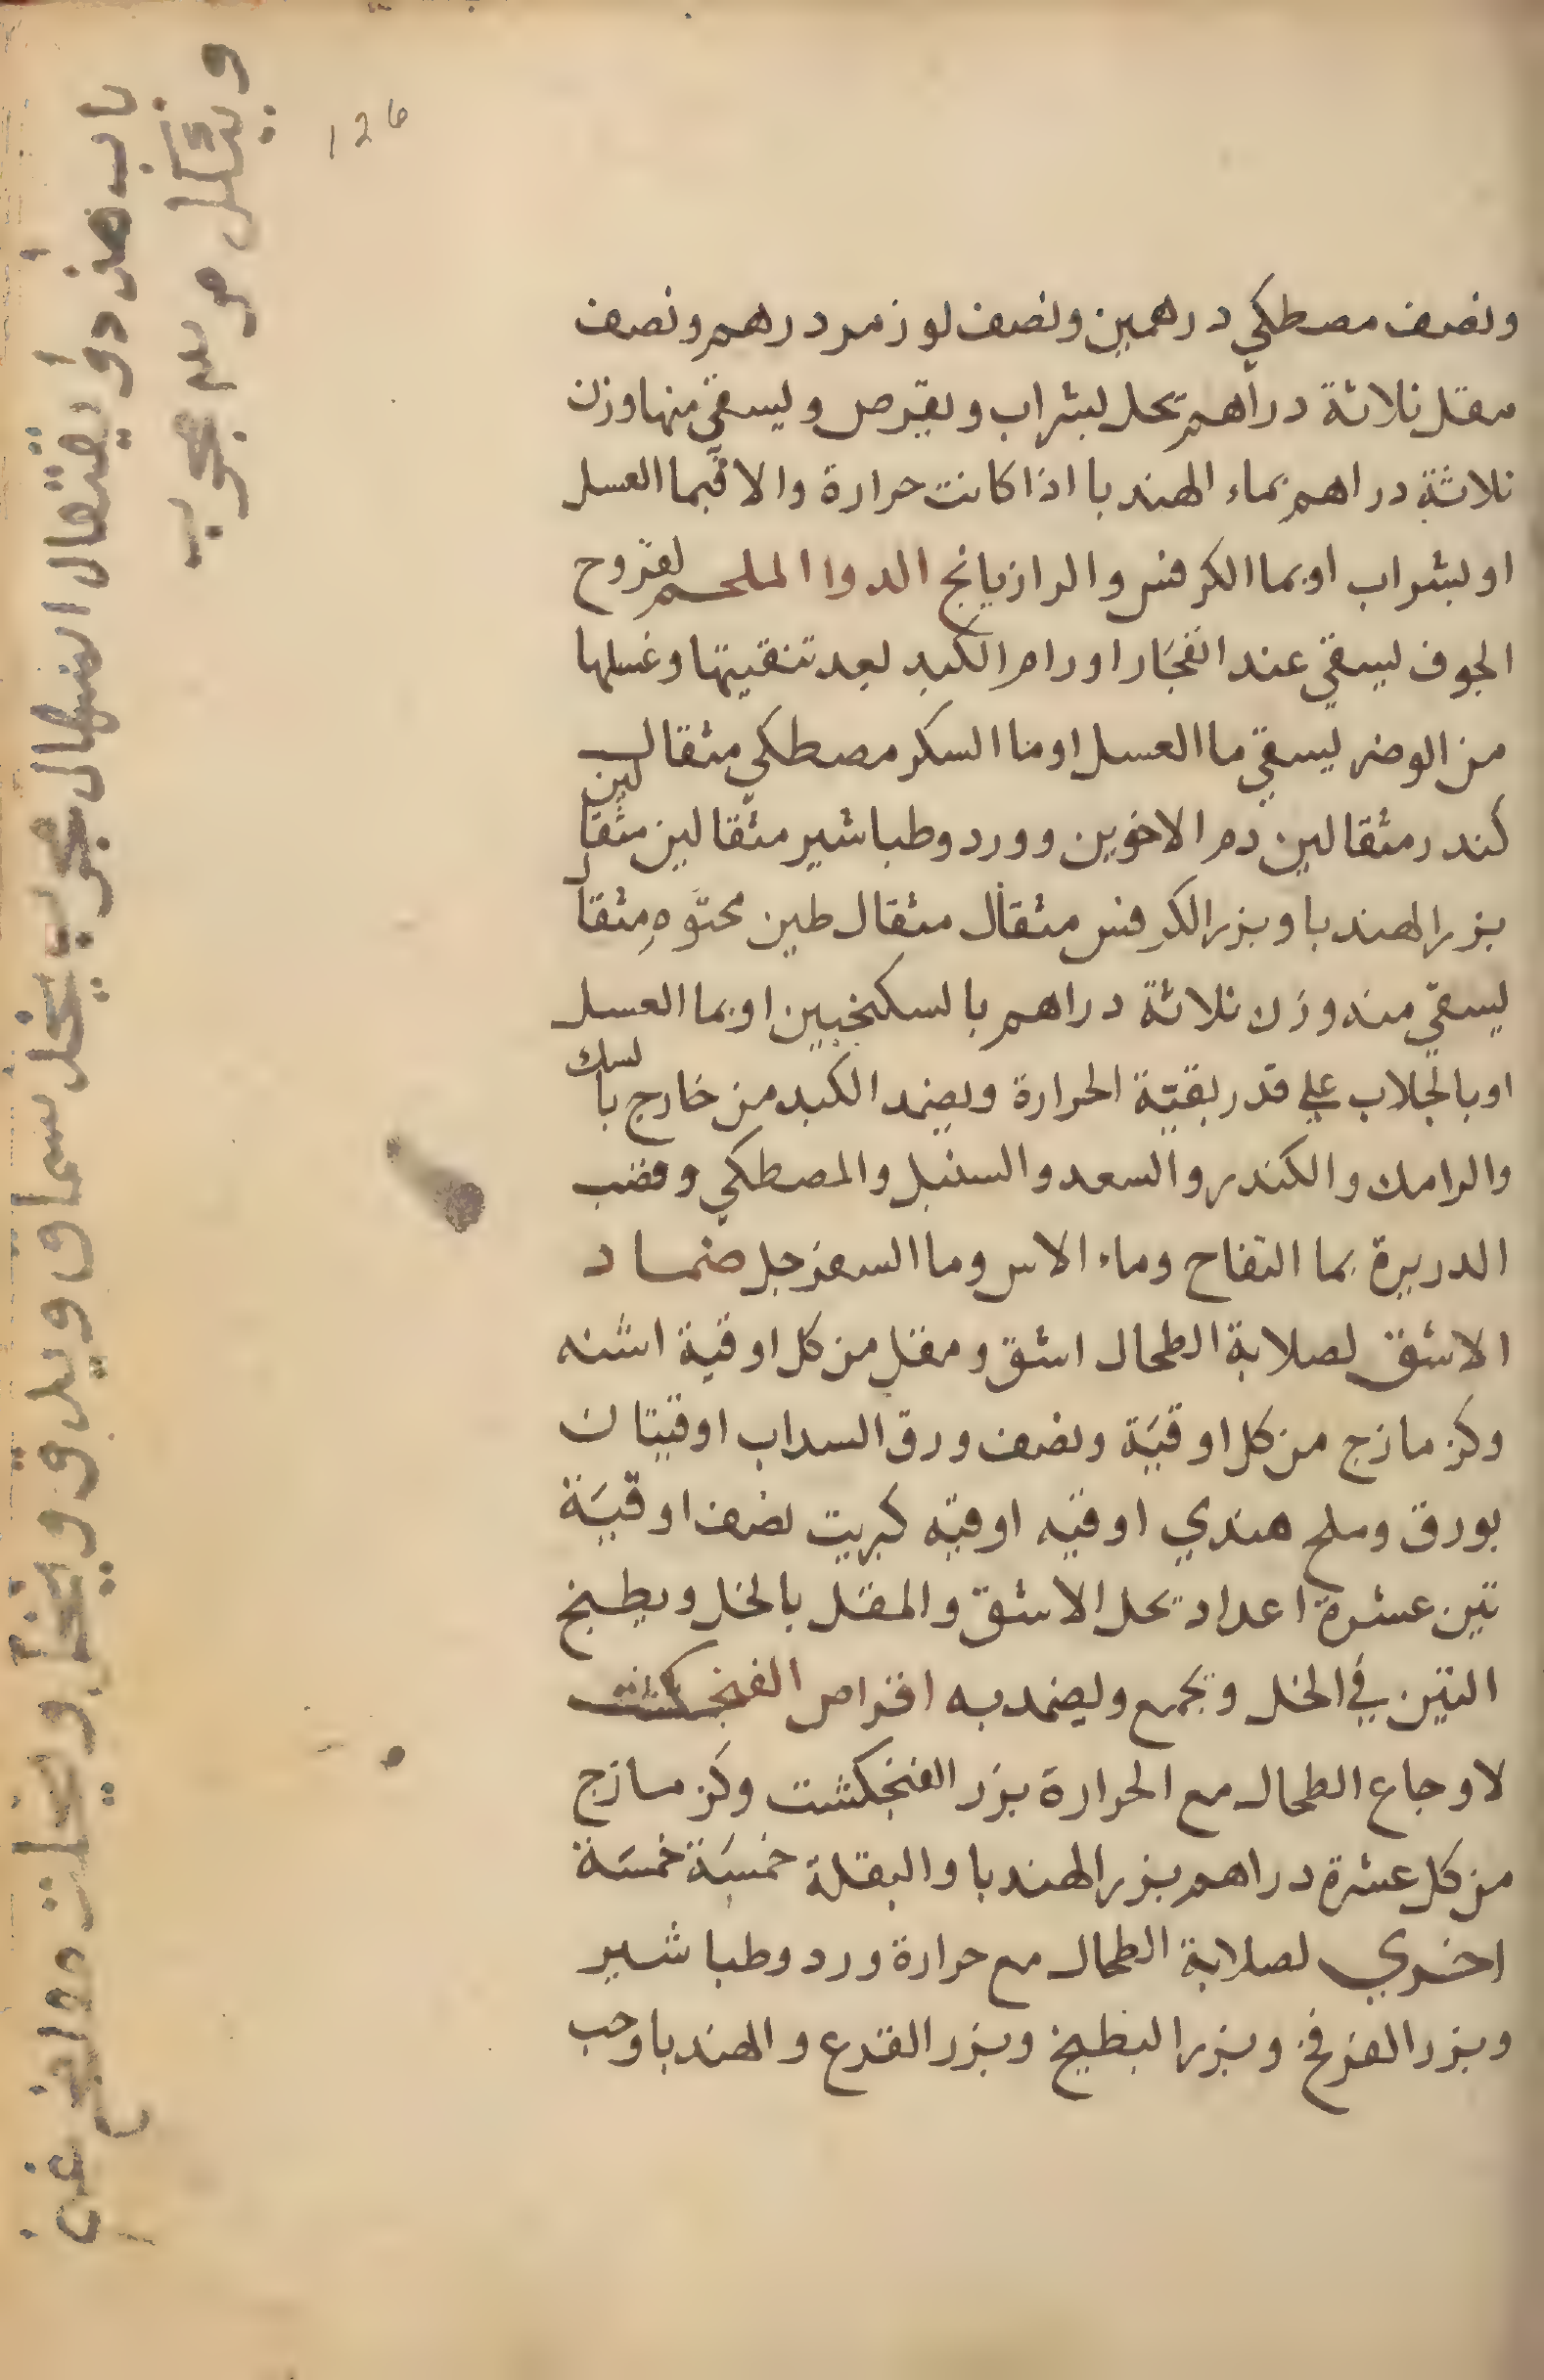 126
ونصف مصطكي درهمين ونصف لوز مر درهم ونصف
مقل ثلاثة دراهم يحل بشراب ويقرص ويسقي منها وزن
ثلاثة دراهم بماء الهندبا اذا كانت حرارة والا فبما العسل
او بشراب او بما الكرفس والرازيانج الدوا الملحم لقروح
الجوف يسقي عند انفجار اورام الكبد بعد تنقيتها وغسلها
من الوضر يسقي ما العسل او ما السكر مصطكي مثقالين
كندر مثقالين دم الاخوين وورد وطباشير مثقالين مثقالين
بزر الهندبا وبزر الكرفس مثقال مثقال طين مختوم مثقال
يسقي منه وزن ثلاثة دراهم بالسكنجبين او بما العسل
او بالجلاب علي قدر بقية الحرارة ويضمد الكبد من خارج بالسك
والرامك والكندر والسعد والسنبل والمصطكي وقضب
الدريرة بما التفاح وماء الاس وما السفرجل ضماد
الاشق لصلابة الطحال اشق ومقل من كل اوقية اشنه
وكزمازج من كل اوقية ونصف ورق السداب اوقيتان
بورق وملح هندي اوقيه اوقيه كبريت نصف اوقية
تين عشرة اعداد يحل الاشق والمقل بالخل ويطبخ
التين في الخل ويجمع ويضمد به اقراص الفنجكشت
لاوجاع الطحال مع الحرارة بزر الفنجكشت وكزمازج
من كل عشرة دراهم بزر الهندبا والبقلة خمسة خمسة
اخري لصلابة الطحال مع حرارة ورد وطباشير
وبزر الفرفخ وبزر البطيخ وبزر القرع والهندبا وحب